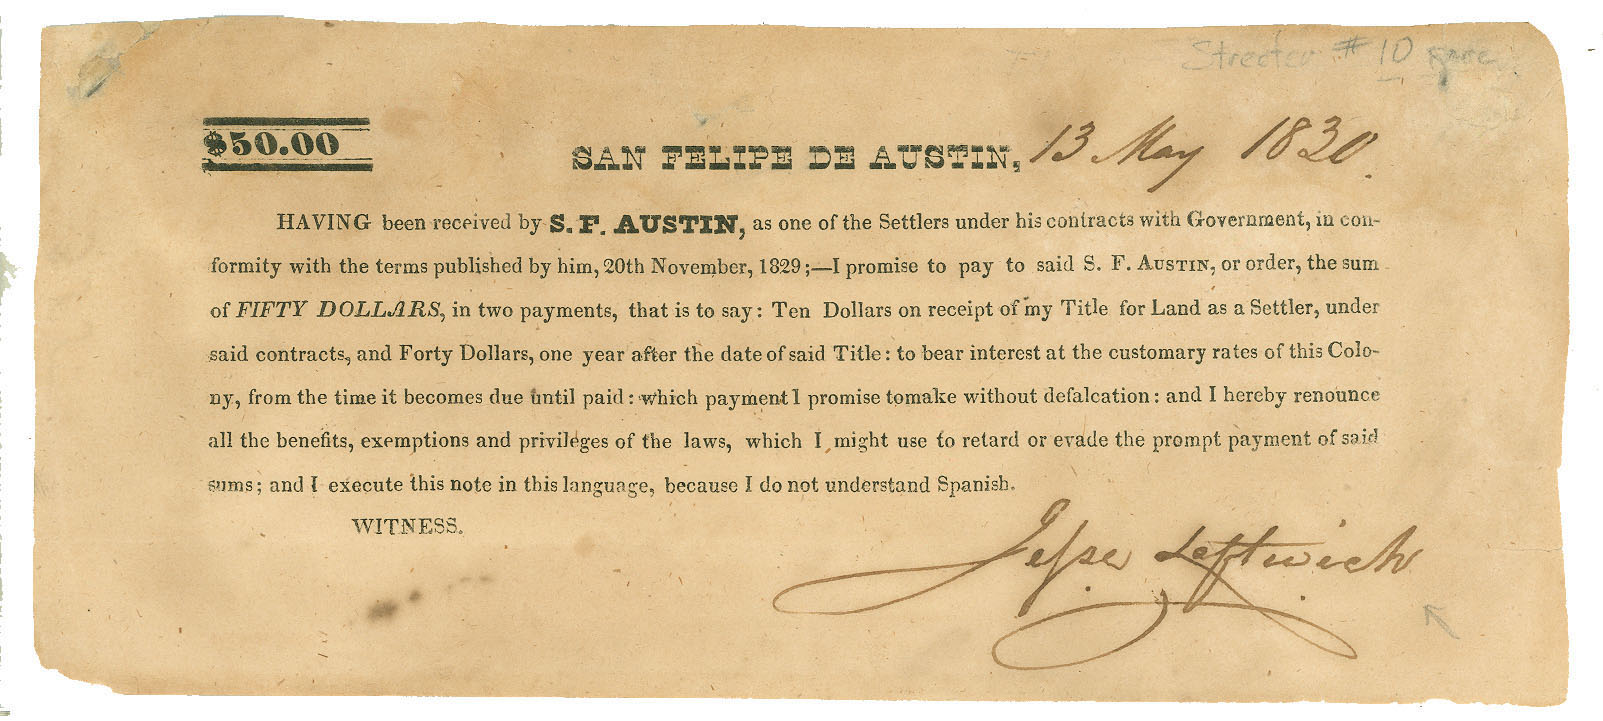 Streeter # 10 rare
$50.00
SAN FELIPE DE AUSTIN, 13 May 1830.
HAVING been received by S. F. AUSTIN, as one of the Settlers under his contracts with Government, in con-
formity with the terms published by him, 20th November, 1829;—I promise to pay to said S. F. AUSTIN, or order, the sum
of FIFTY DOLLARS, in two payments, that is to say: Ten Dollars on receipt of my Title for Land as a Settler, under
said contracts, and Forty Dollars, one year after the date of said Title: to bear interest at the customary rates of this Colo-
ny, from the time it becomes due until paid: which payment I promise tomake without defalcation: and I hereby renounce
all the benefits, exemptions and privileges of the laws, which I might use to retard or evade the prompt payment of said
sums; and I execute this note in this language, because I do not understand Spanish.
WITNESS.
Jesse Leftwich